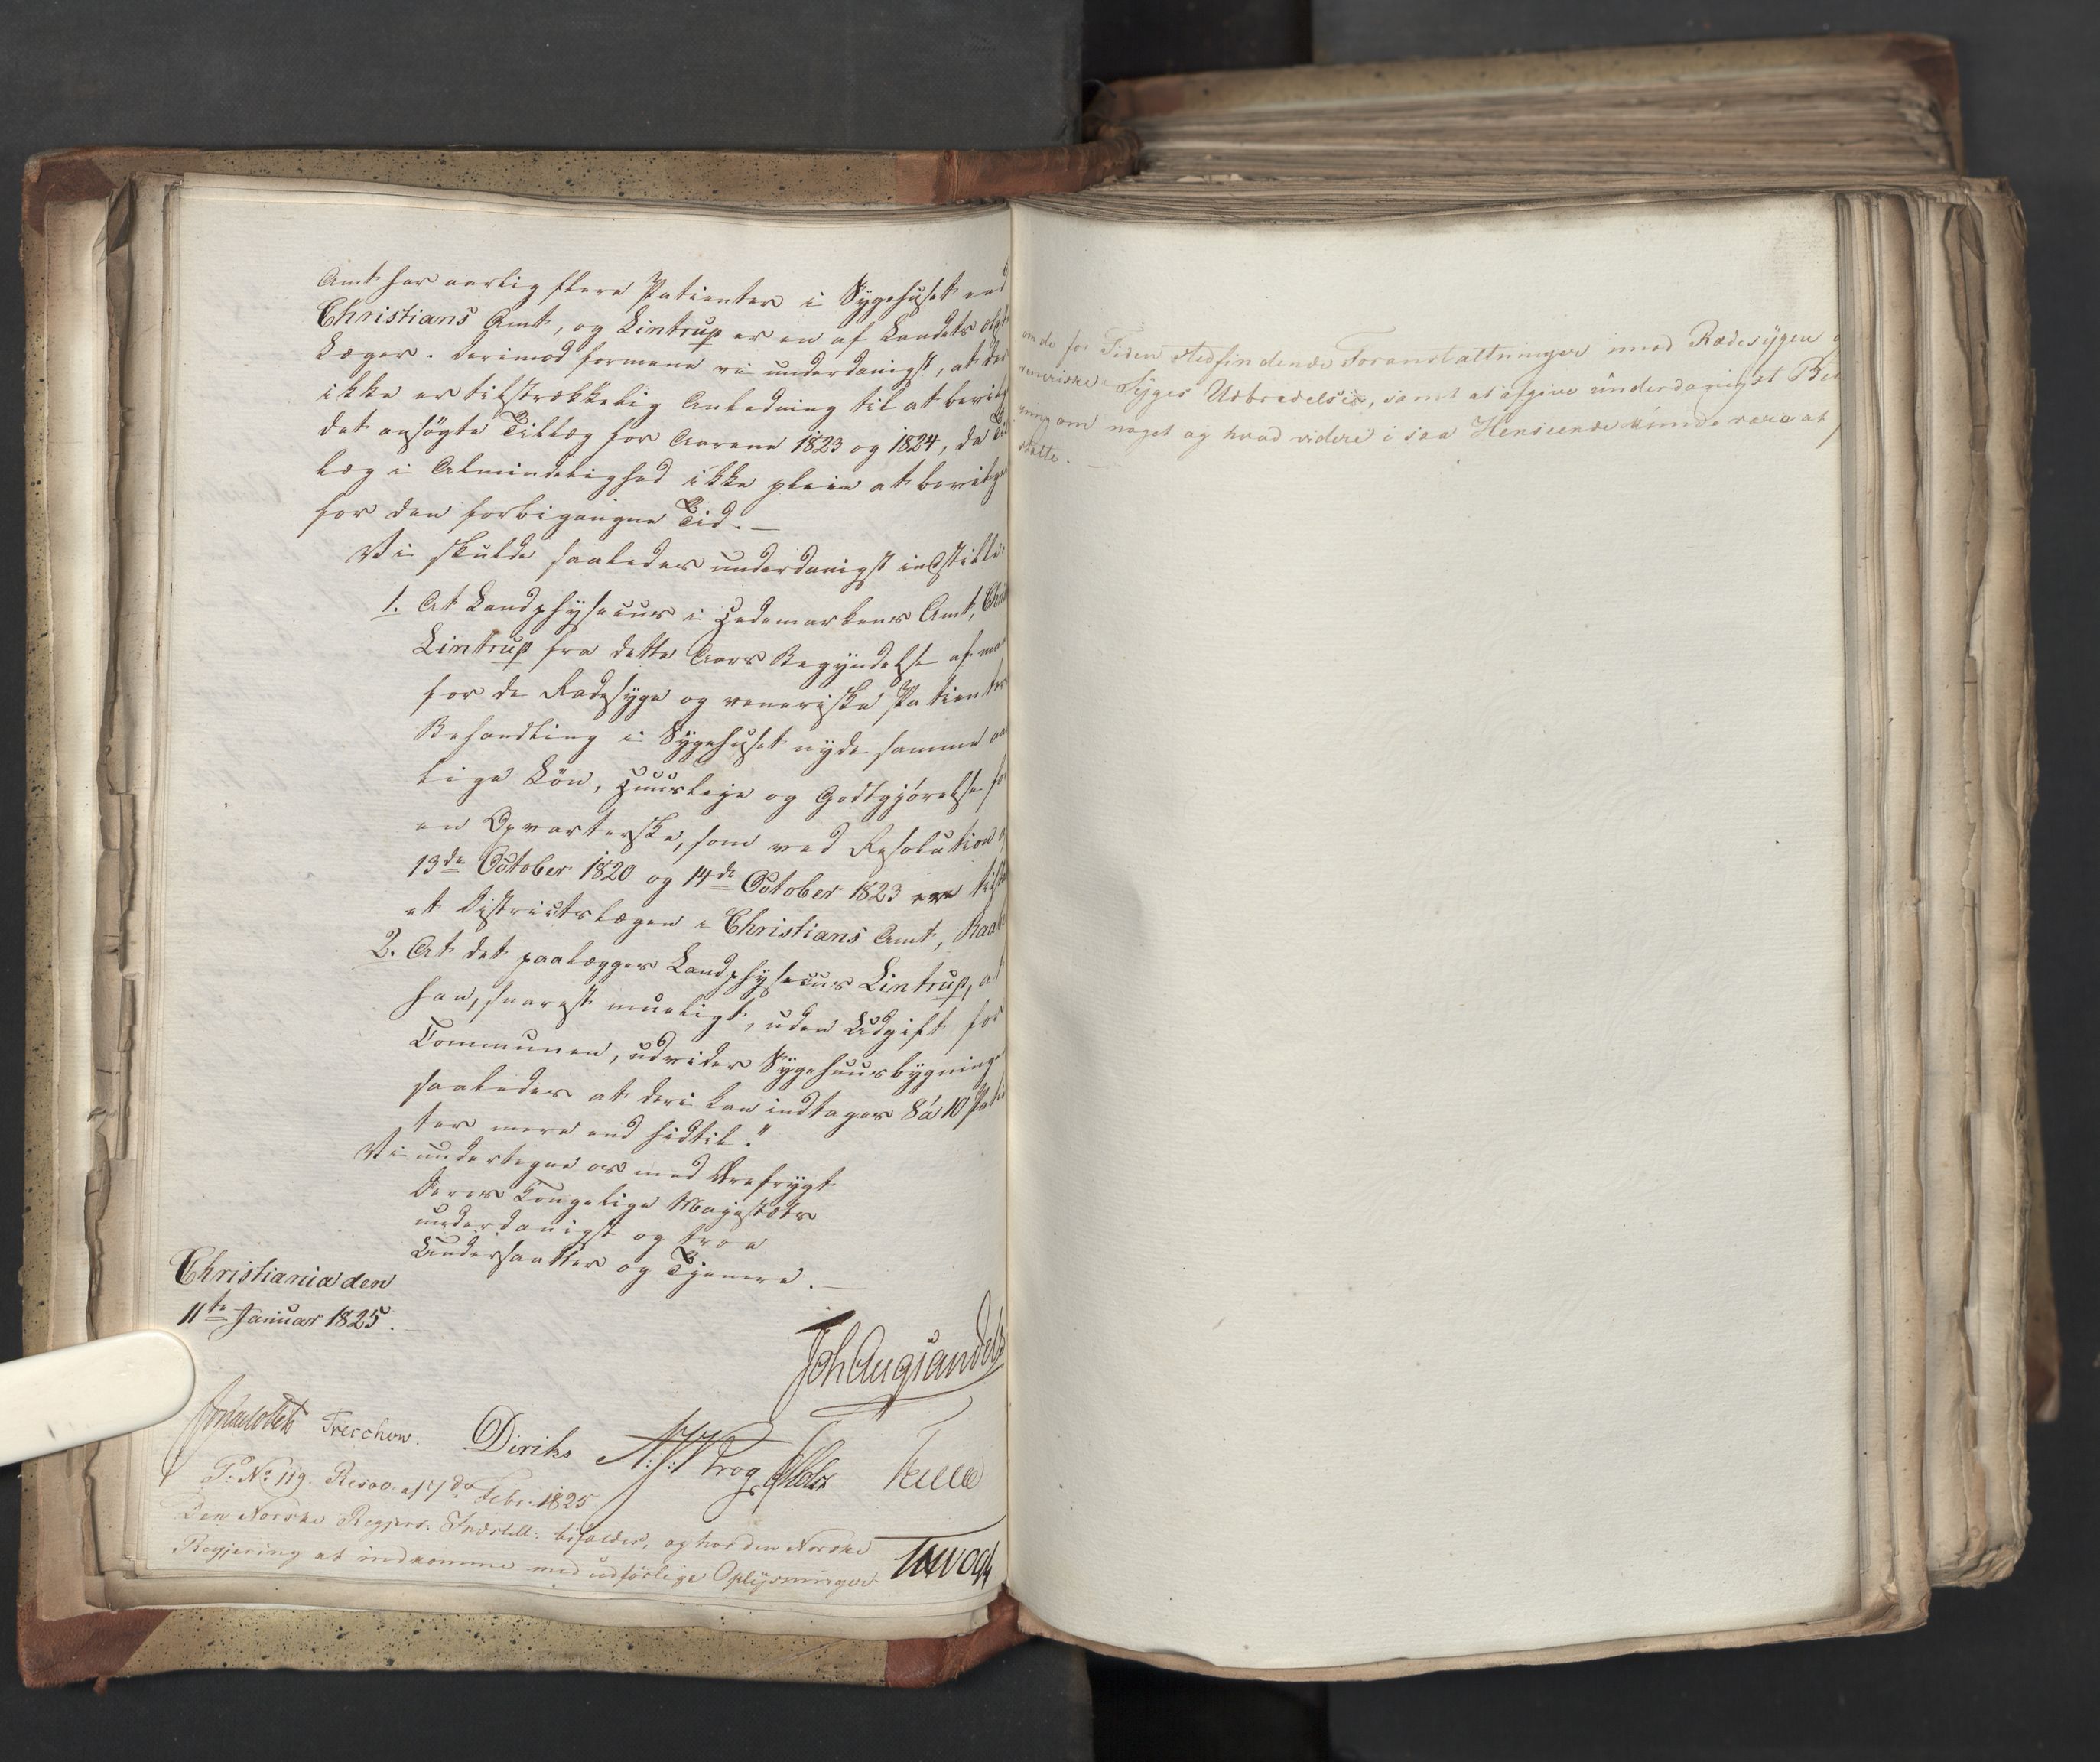 Amt har aarlig flere Patienter i Sygehuset end
Christians Amt, og Lintrup er en af Landets ældste
Læger. Derimod formene vi underdanigst, at der
ikke er tilstrækkelig Anledning til at bevilge
det ansøgte Tillæg for Aarene 1823 og 1824, da Til
læg i Almindelighed ikke pleie at bevilges
for den forbigangne Tid. —
Vi skulde saaledes underdanigst indstille:
1. At Landphysicus i Hedemarkens Amt,
Lintrup fra dette Aars Begyndelse af maa
for de Radesyge og veneriske Patienters
Behandling i Sygehuset nyde samme aar
lige Løn, Huusleje og Godtgjörelse for
en Opvarterske, som ved Resolution af
13de October 1820 og 14de October 1823 ere tilstaa
et Districtslægen i Christians Amt,
2. At det paalægges Landphysicus Lintrup, at
han, snarest mueligt, uden Udgift for
Communen, udvider Sygehuusbygningen
saaledes at deri kan indtages 8 á 10 Patien
ter mere end hidtil."
Vi undertegne os med Ærefrygt
Deres Kongelige Majestæts
underdanigst og troe
Undersaatter og Tjenere. —
Christiania den
11te Januar 1825. —
Joh Aug Sandels
Treschow. Diriks Krog Holst
P: No 119. Resol. af 7de Febr. 1825
Den Norske Regjers: Indstill: bifaldes, og har den Norske
Regjering at indkomme med udförlige Oplysninger
om de for Tiden stedfindende Foranstaltninger imod Radesygen og
veneriske Syges Udbredelse, samt at afgive underdanigst Be
ning om noget og hvad videre i saa Henseende kunde være at